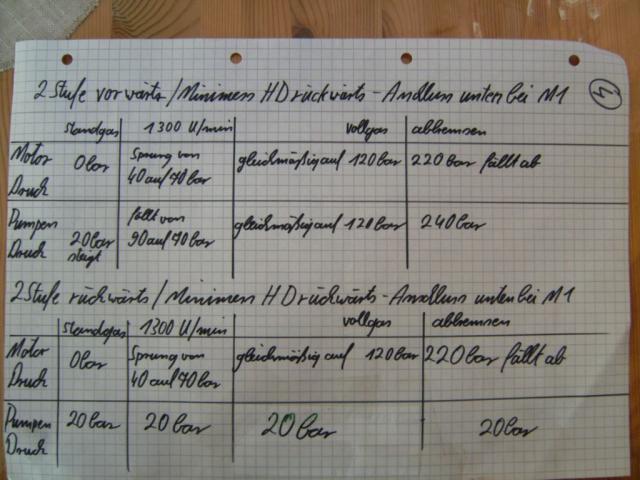 2 Stufe vorwärts / Minimess HD rückwärts - Anschluss unten bei M1
standgas 1300 U/min vollgas abbremsen
Motor Druck 0bar Sprung von 40 auf 70 bar gleichmäßig auf 120 bar 220 bar fällt ab
Pumpen Druck 20 bar steigt fällt von 90 auf 70 bar gleichmäßig auf 120 bar 240 bar
2 Stufe rückwärts / Minimess HD rückwärts - Anschluss unten bei M1
standgas 1300 U/min vollgas abbremsen
Motor Druck 0bar Sprung von 40 auf 70 bar gleichmäßig auf 120 bar 220 bar fällt ab
Pumpen Druck 20 bar 20 bar 20 bar 20 bar